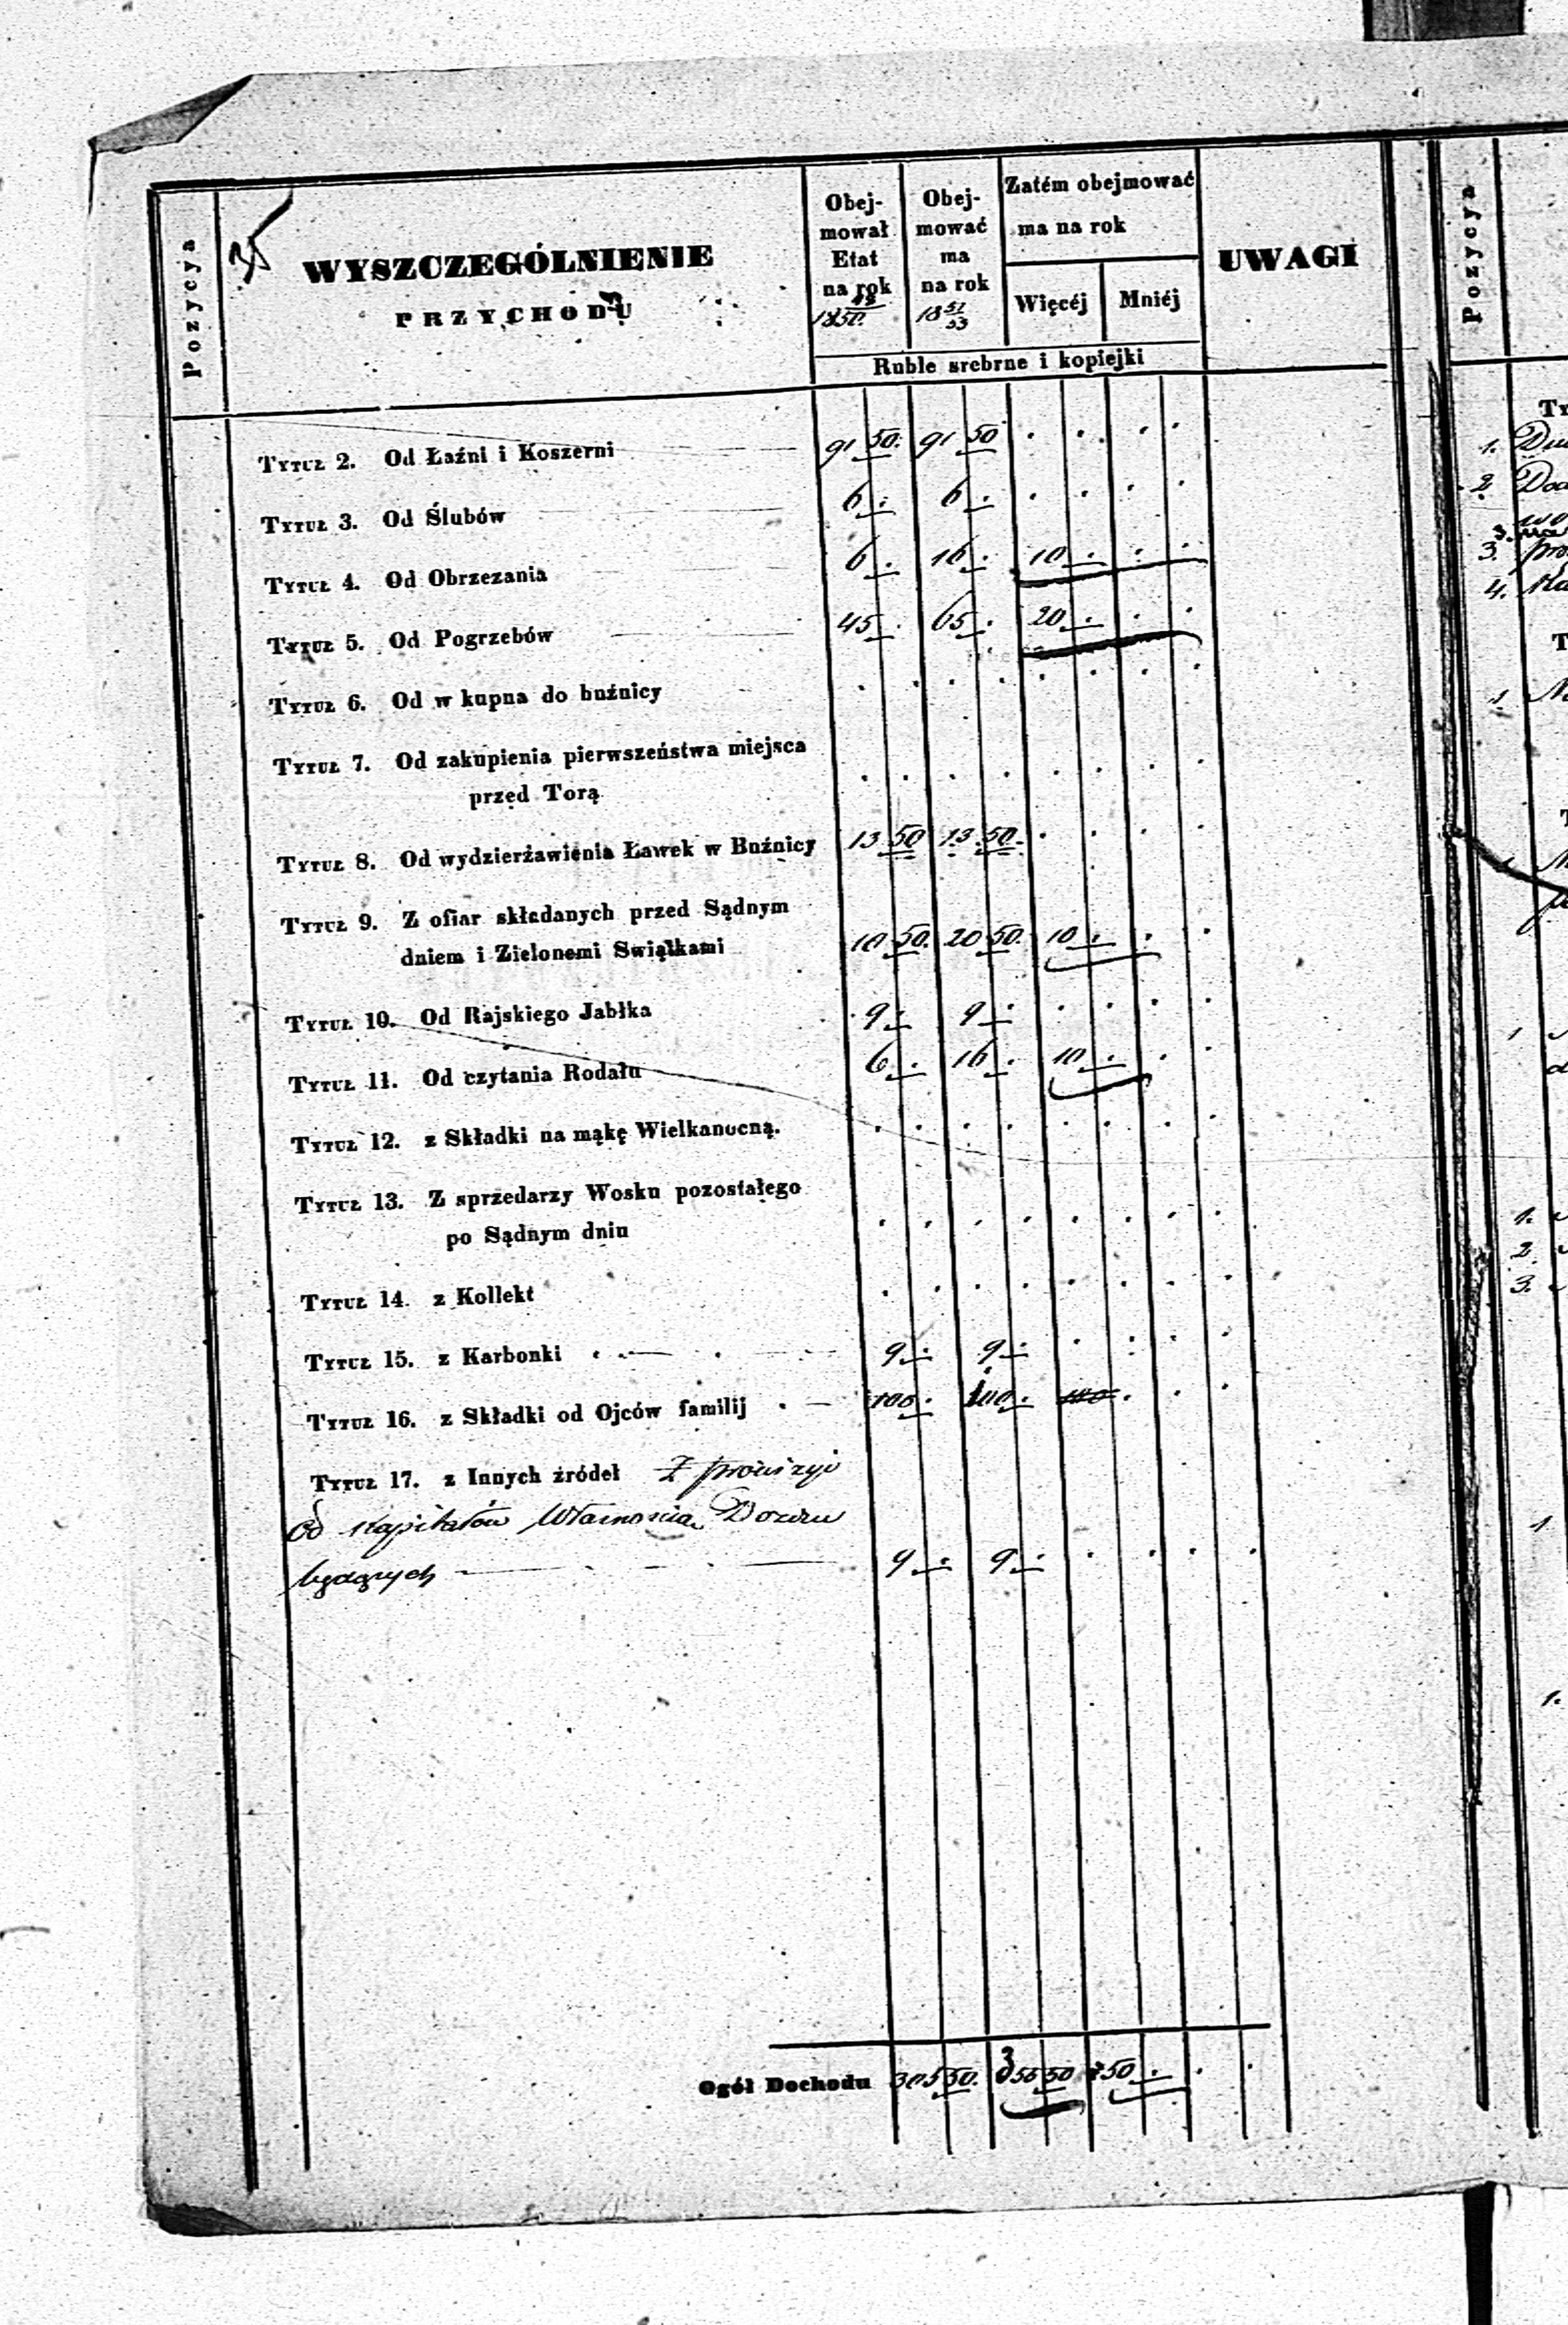 Pozycya
35
WYSZCZEGÓLNIENIE
PRZYCHODU
Obej-
mował
Etat
na rok
18 48/50.
Obej-
mować
ma
na rok
18 51/53
Zatém obejmować
ma na rok
Więcéj Mniéj
UWAGI
Ruble srebrne i kopiejki
TYTUŁ 2. Od Łaźni i Koszerni 91 50. 91 50 . . . .
TYTUŁ 3. Od Ślubów 6 . 6 . . . . .
TYTUŁ 4. Od Obrzezania 6 . 16 . 10 . . .
TYTUŁ 5. Od Pogrzebów 45 . 65 . 20 . . .
TYTUŁ 6. Od w kupna do buźnicy . . . . . . . .
TYTUŁ 7. Od zakupienia pierwszeństwa miejsca
przed Torą . . . . . . . .
TYTUŁ 8. Od wydzierżawienia Ławek w Buźnicy 13 50 13 50. . . . .
TYTUŁ 9. Z ofiar składanych przed Sądnym
dniem i Zielonemi Swiątkami 10 50. 20 50. 10 . . .
TYTUŁ 10. Od Rajskiego Jabłka 9 . 9 . . . . .
TYTUŁ 11. Od czytania Rodału 6 . 16 . 10 . . .
TYTUŁ 12. z Składki na mąkę Wielkanocną. . . . . . . .
TYTUŁ 13. Z sprzedarzy Wosku pozostałego
po Sądnym dniu . . . . . . . .
TYTUŁ 14. z Kollekt . . . . . . . .
TYTUŁ 15. z Karbonki 9 . 9 . . . . .
TYTUŁ 16. z Składki od Ojców familij 100 . 100 . . . .
TYTUŁ 17. z Innych źródeł Z prowizyi
Od Kapitałów Własnością Dozoru
będących 9 . 9 . . . . .
Ogół Dochodu 305 50. 355 50 50 . . .
Pozycya
1.
2
3.
4.
1
1
1.
2.
3.
1
1.